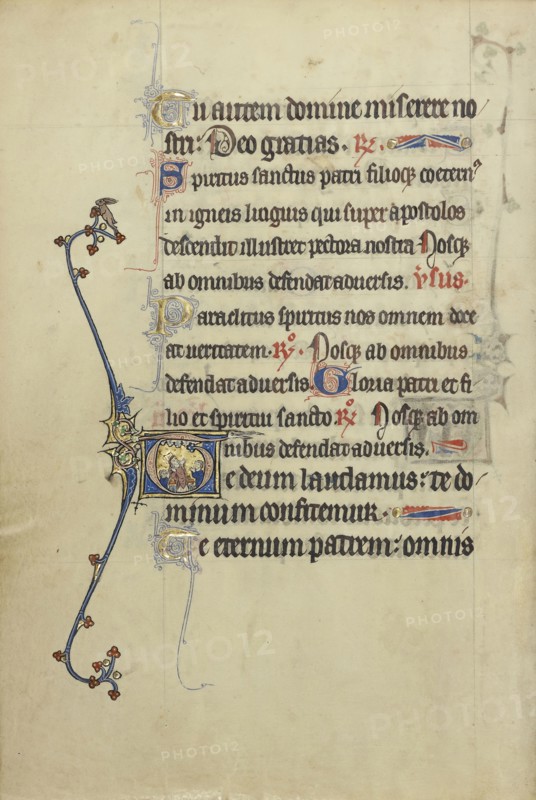 Tu autem domine miserere no/
stri: Deo gratias. R̃.
Spiritus sanctus patri filioqꝫ coeternꝰ
in igneis linguis qui super apostolos
descendit illustret pectora nostra Nosqꝫ
ab omnibus defendat aduersis. v̾sus.
Paraclitus spiritus nos omnem doce
at ueritatem. R̃o. Nosqꝫ ab omnibus
defendat aduersis. Gloria patri et fi
lio et spiritui sancto. R̃o. Nosqꝫ ab om
nibus defendat aduersis.
Te deum laudamus: te do/
minum confitemur.
Te eternum patrem: omnis
PHOTO12